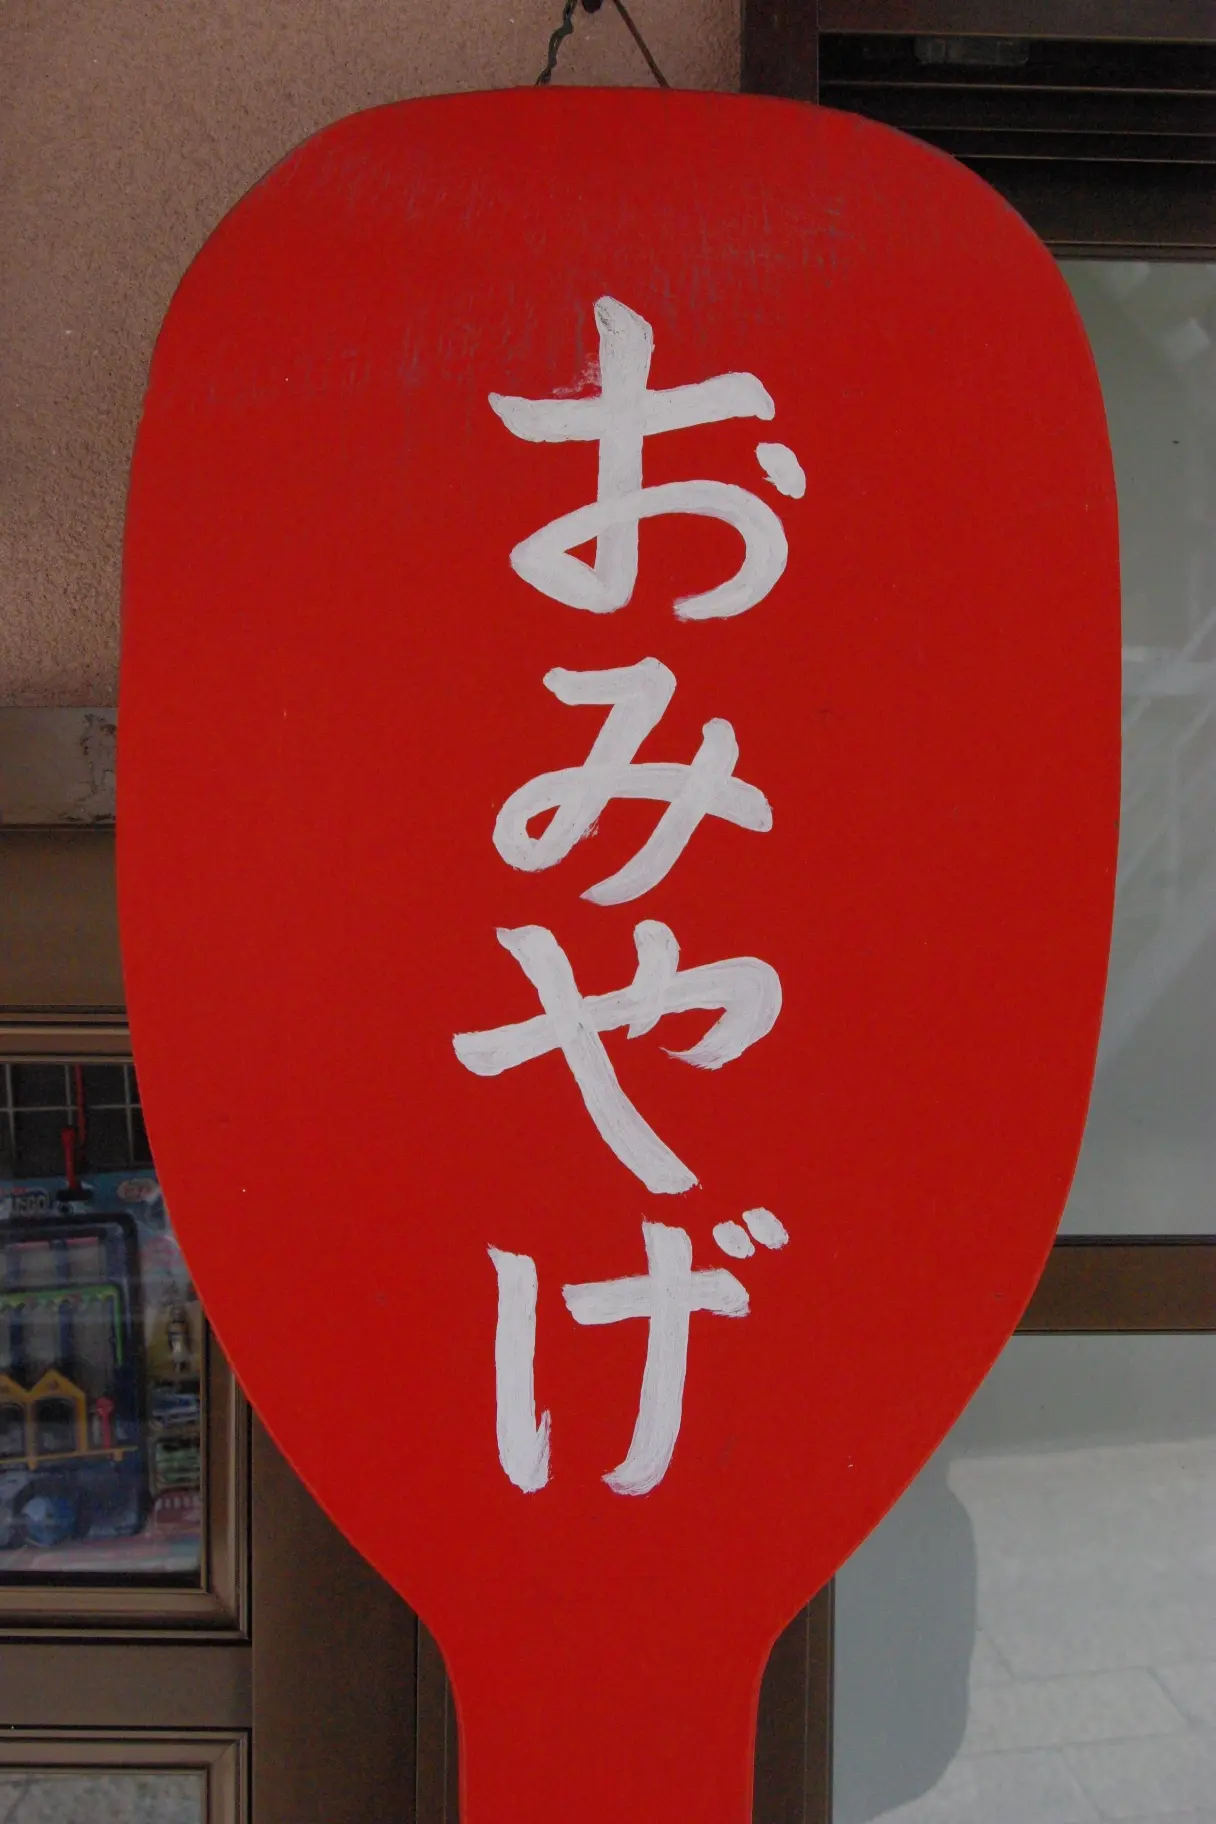 おみやげ